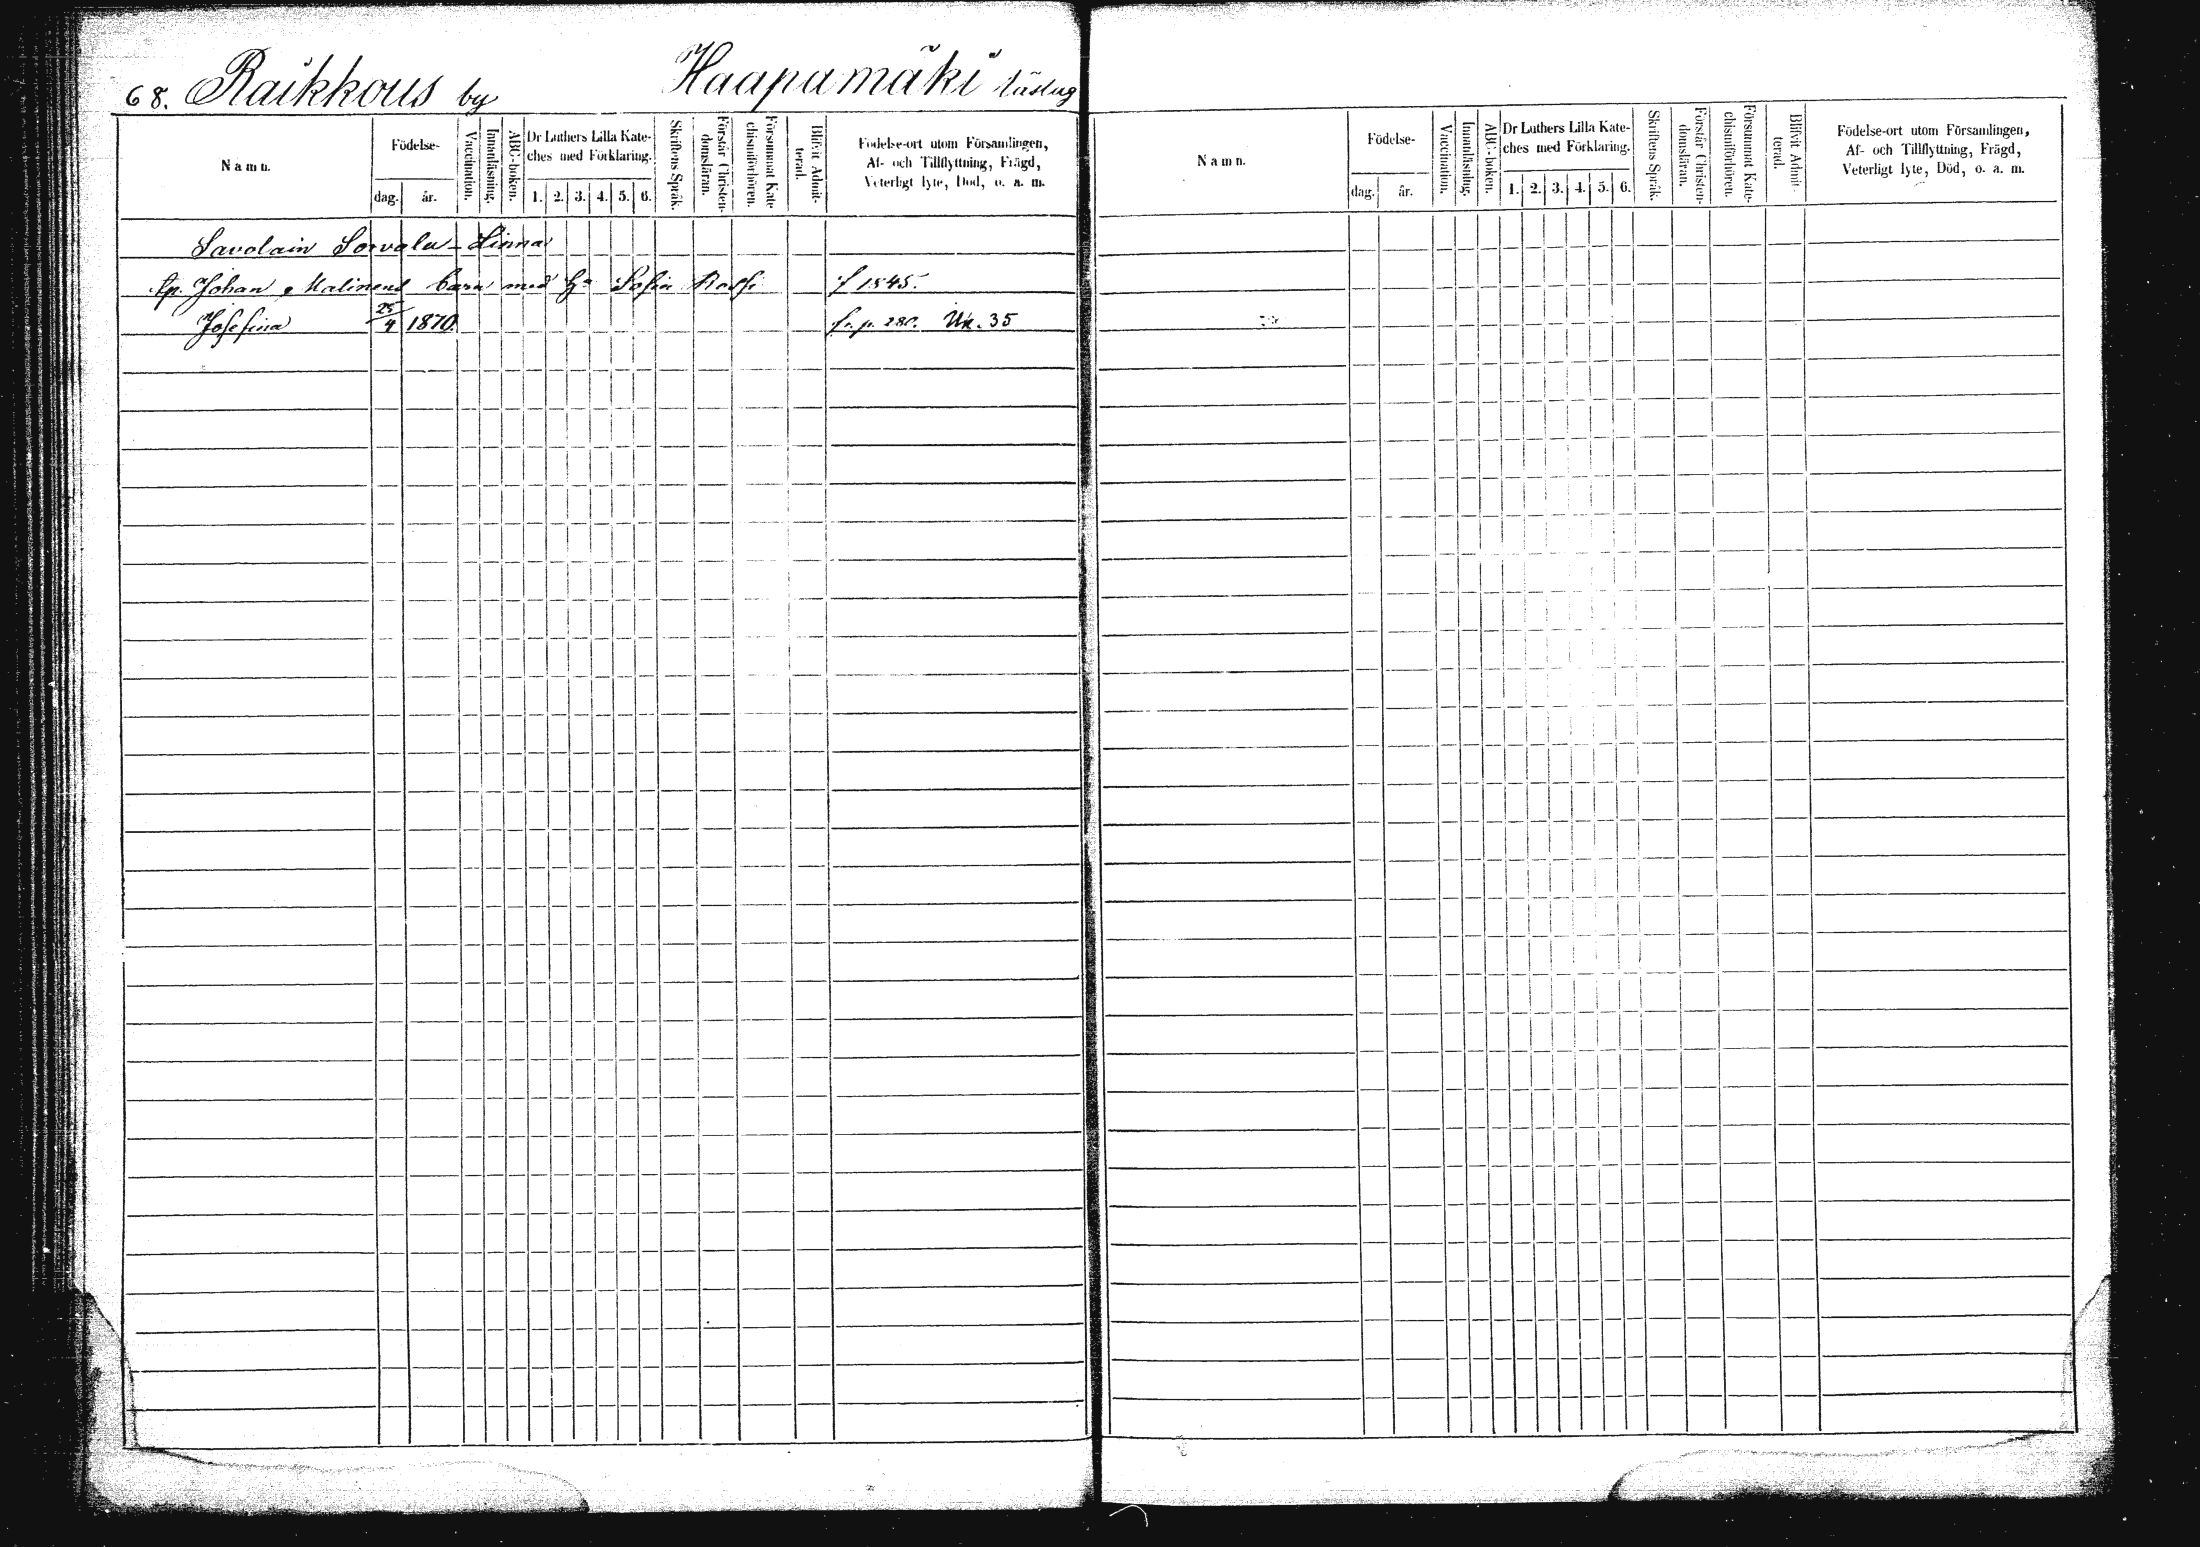 68. Raikkous by Haapamäki läslag
Namn.
Födelse-
dag. år.
Vaccination.
Innanläsning.
ABC-boken.
Dr Luthers Lilla Kate-
ches med Förklaring.
1. 2. 3. 4. 5. 6.
Skriftens Språk.
Förstår Christen-
domsläran.
Försummat Kate-
chismiförhören.
Blifvit Admit-
terad.
Födelse-ort utom Församlingen,
Af- och Tillflyttning, Frägd,
Veterligt lyte, Död, o. a. m.
Savolain Sorvala - Linna
Johan Malinens barn med Sofia f 1845.
Josefina 25/4 1870. fr. p. 280. 35
Namn.
Födelse-
dag. år.
Vaccination.
Innanläsning.
ABC-boken.
Dr Luthers Lilla Kate-
ches med Förklaring.
1. 2. 3. 4. 5. 6.
Skriftens Språk.
Förstår Christen-
domsläran.
Försummat Kate-
chismiförhören.
Blifvit Admit-
terad.
Födelse-ort utom Församlingen,
Af- och Tillflyttning, Frägd,
Veterligt lyte, Död, o. a. m.